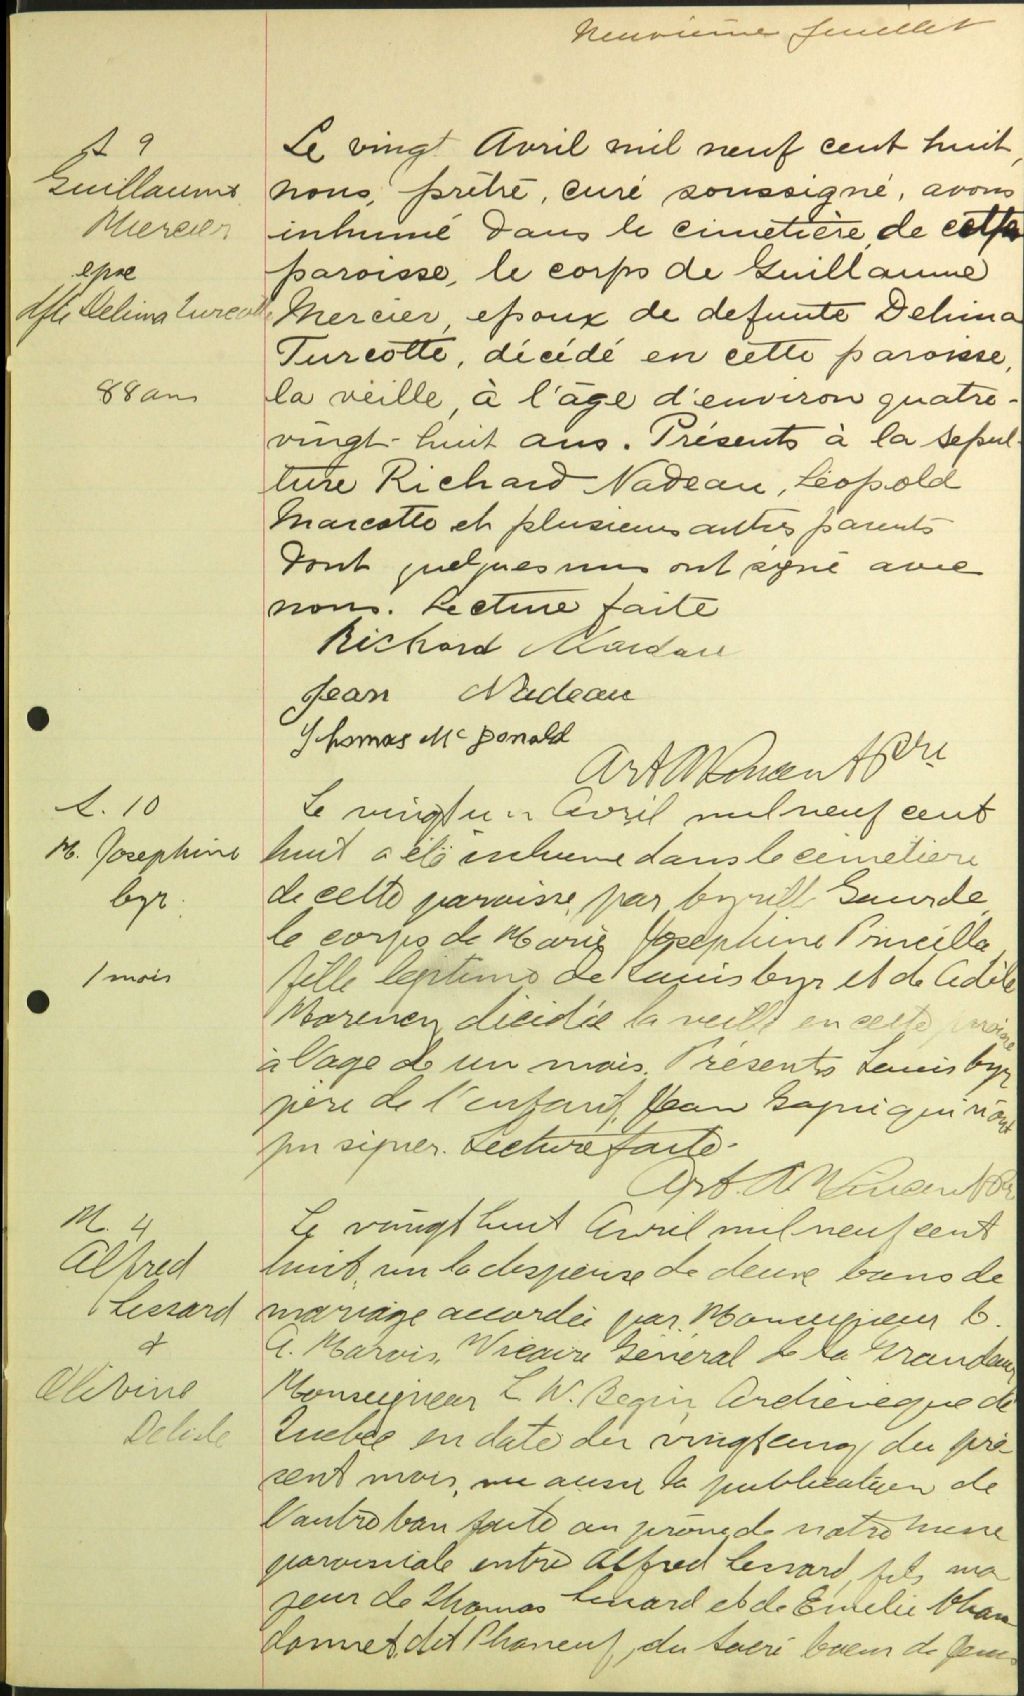 Neuvième feuillet
S. 9
Guillaume
Mercier
epx
dfte Delima Turcotte
88 ans
Le vingt Avril mil neuf cent huit,
nous, prêtre, curé soussigné, avons
inhumé dans le cimetière de cette
paroisse, le corps de Guillaume
Mercier, epoux de defunte Delima
Turcotte, décédé en cette paroisse,
la veille, à l'âge d'environ quatre-
vingt-huit ans. Présents à la sepul-
ture Richard Nadeau, Léopold
Marcotte et plusieurs autres parents
dont quelques uns ont signé avec
nous. Lecture faite
Richard Nadeau
Jean Nadeau
Thomas McDonald
Art Vincent Ptre
S. 10
M. Josephine
Cyr.
1 mois
Le vingt un Avril mil neuf cent
huit a été inhumé dans le cimetiere
de cette paroisse, par Cyrille Gourde,
le corps de Marie Josephine Priscilla
fille legitime de Louis Cyr et de Adèle
Marency décidée la veille en cette paroisse
à l'age de un mois. Présents Louis Cyr
père de l'enfant, Jean qui n'ont
pu signer. Lecture faite.
Art. A. Vincent Ptr
M. 4
Alfred
Lessard
&
Olivine
Delisle
Le vingt huit Avril mil neuf cent
huit, vu la dispense de deux bans de
mariage accordée par Monseigneur C.
A. Marois, Vicaire Général de Sa Grandeur
Monseigneur L. N. Begin, Archevêque de
Quebec en date du vingt cinq du pré
sent mois, vu aussi la publication de
l'autre ban faite au prône de notre messe
paroissiale entre Alfred Lessard, fils ma
jeur de Thomas Lessard et de Emelie
dit Phaneuf, du Sacré Coeur de Jesus